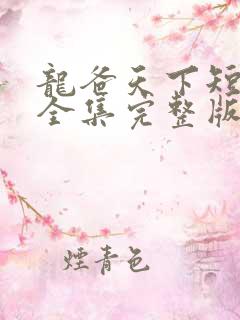 龍爸天下短
全集完整版
煙青色